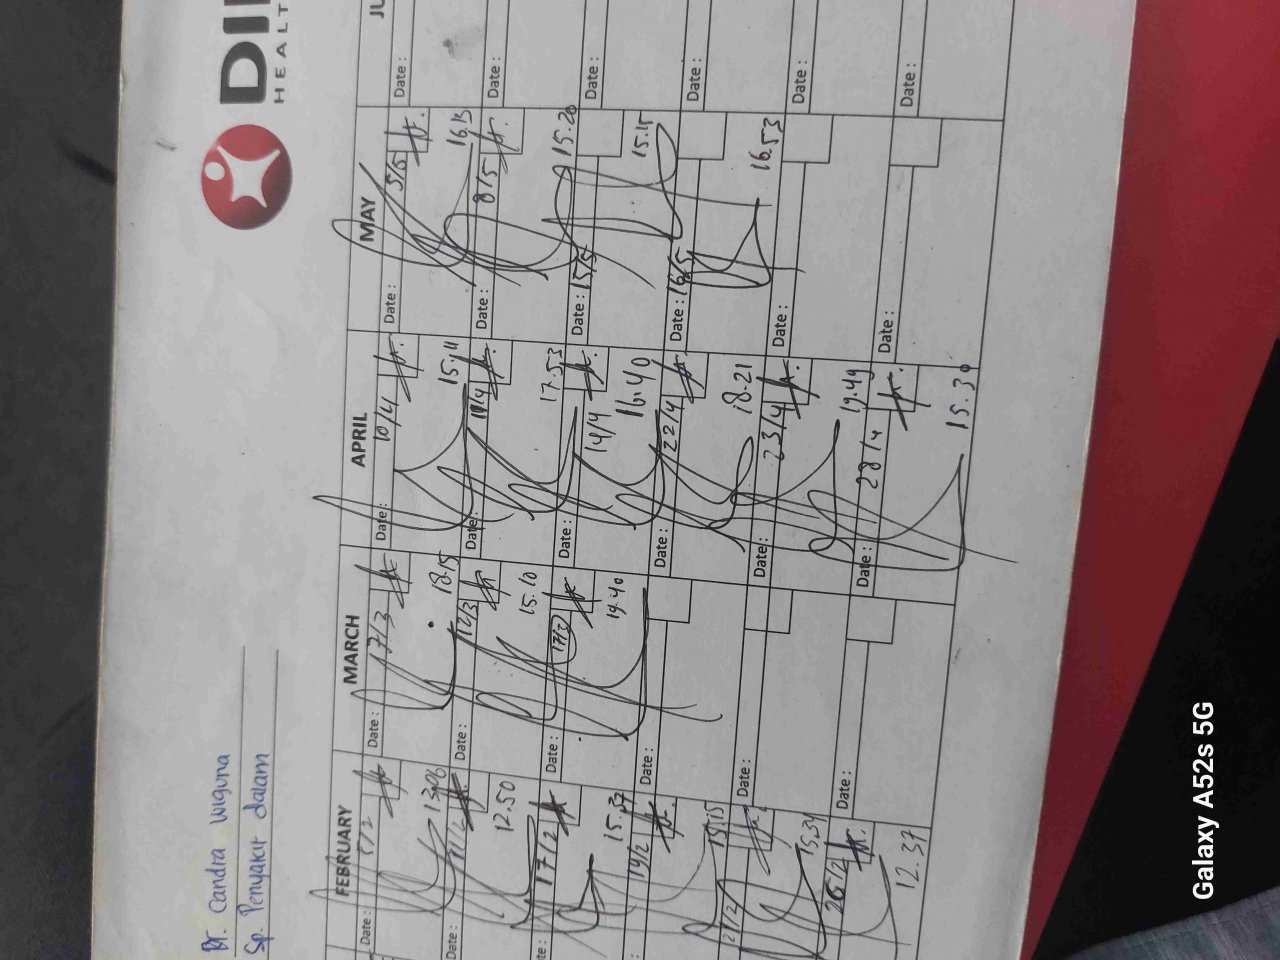 Dr. Candra Wiguna
Sp. Penyakit dalam
DI
HEALT
FEBRUARY
MARCH
APRIL
MAY
JU
Date :
Date :
Date : 17/3
18.15
Date : 10/4
15.11
Date : 5/5
16.15
Date :
11/2
12.50
Date : 12/3
15.10
Date : 11/4
17.53
Date : 8/5
15.20
Date :
17/2
15.37
Date : 17/3
19.40
Date : 14/4
16.40
Date : 15/5
15.15
Date :
19/2
15.15
Date :
Date : 22/4
18.21
Date : 16/5
16.53
Date :
21/2
15.39
Date :
Date : 23/4
19.49
Date :
Date :
26/2
12.37
Date :
Date : 28/4
15.30
Date :
Date :
Galaxy A52s 5G